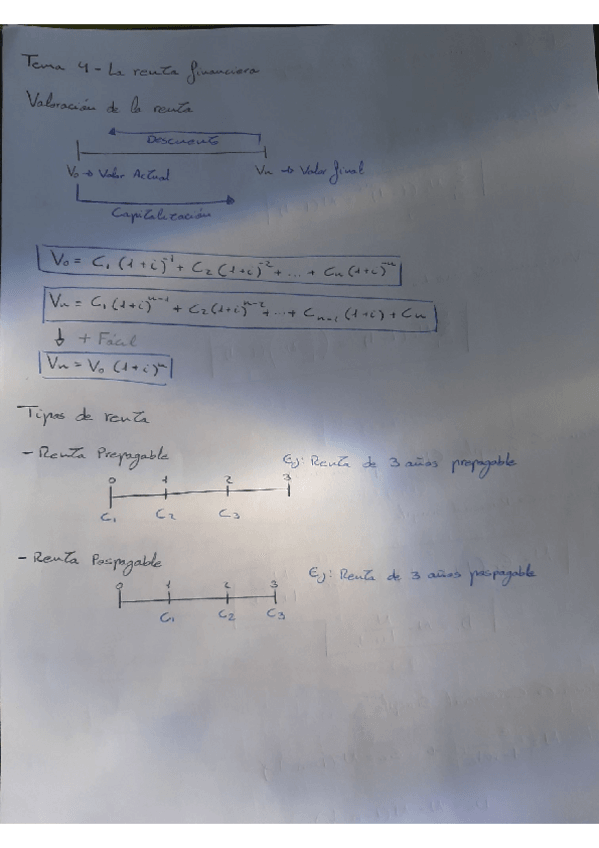 Tema 4 - La renta financiera
Valoración de la renta
Descuento
V₀ → Valor Actual Vn → Valor final
Capitalización
V₀ = C₁ (1+i)⁻¹ + C₂ (1+i)⁻² + ... + Cn (1+i)⁻ⁿ
Vn = C₁ (1+i)ⁿ⁻¹ + C₂ (1+i)ⁿ⁻² + ... + Cn-1 (1+i) + Cn
↓ + Fácil
Vn = V₀ (1+i)ⁿ
Tipos de renta
- Renta Prepagable Ej: Renta de 3 años prepagable
0 1 2 3
C₁ C₂ C₃
- Renta Pospagable Ej: Renta de 3 años pospagable
0 1 2 3
C₁ C₂ C₃